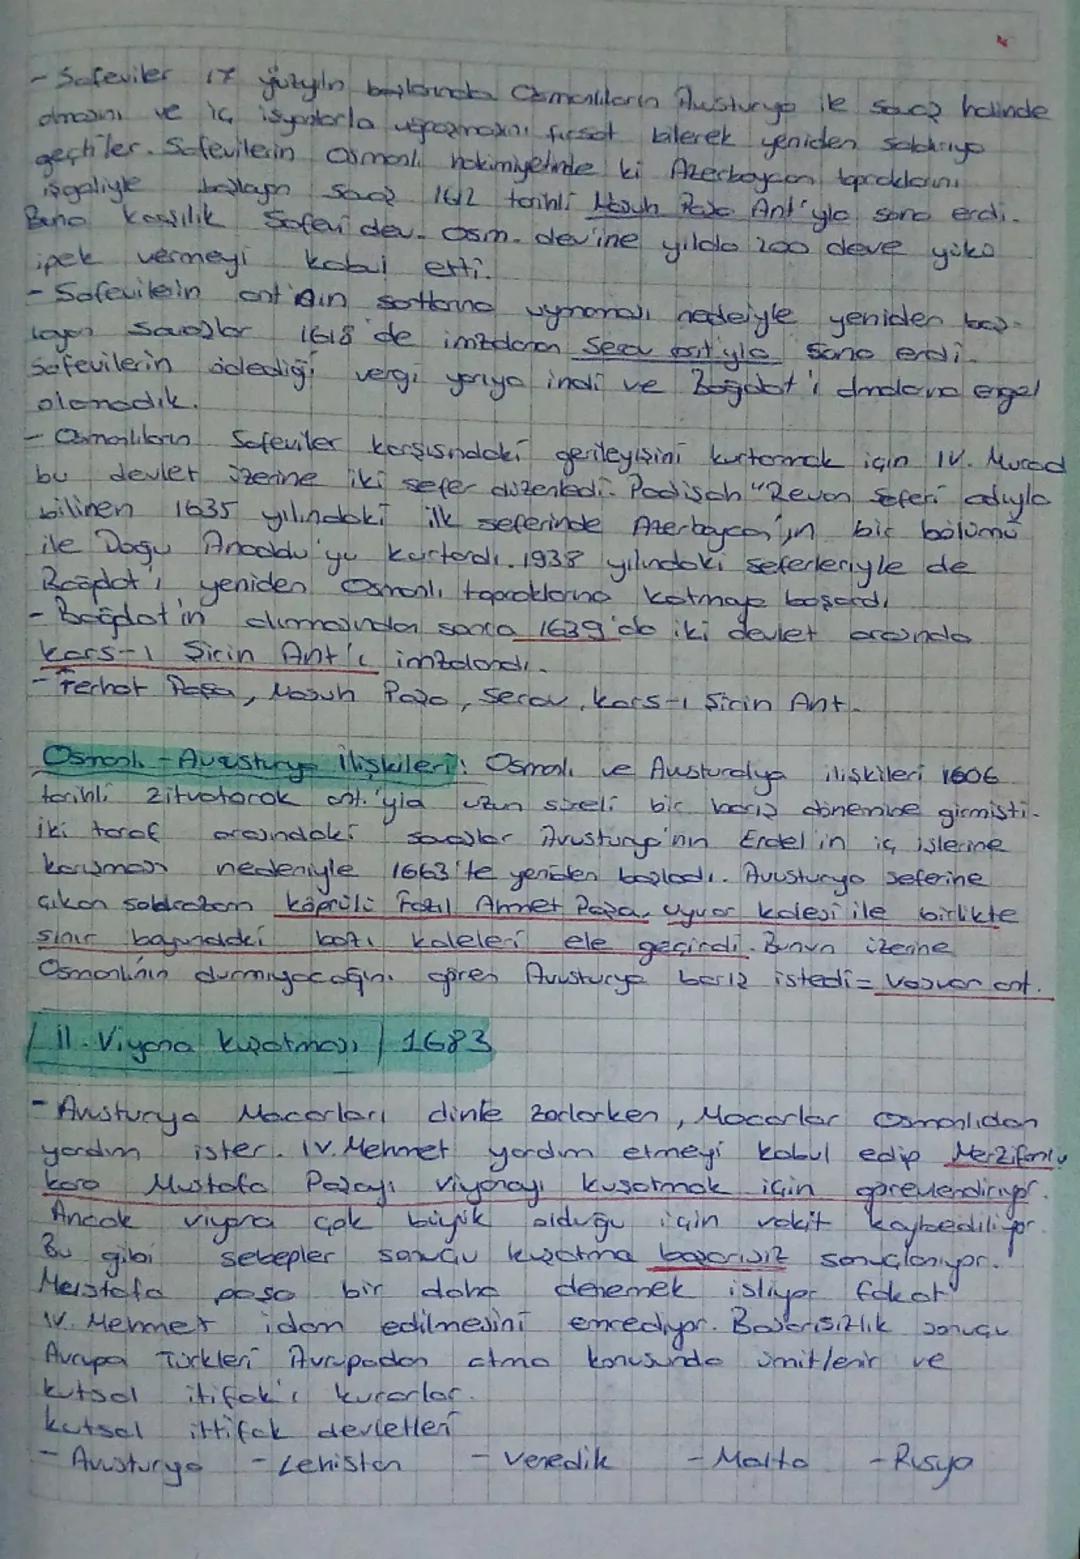 - Safeviler 17 yüzyılın başlarında Osmanlıların Avusturya ile savaş halinde
olmasını ve iç isyanlarla uğraşmasını fırsat bilerek yeniden saldırıya
geçtiler. Safevilerin Osmanlı hakimiyetinde ki Azerbaycan topraklarını
işgaliyle başlayan savaş 1612 tarihli Nasuh Paşa Ant'yla sona erdi.
Buna karşılık Safevi dev. Osm. dev'ine yılda 200 deve yükü
ipek vermeyi kabul etti.
- Safevilerin ant'ın şartlarına uymaması nedeniyle yeniden baş-
layan savaşlar 1618'de imzalanan Serav ant'yla sona erdi.
Safevilerin ödediği vergi yarıya indi ve Bağdat'ı almalarına engel
olamadık.
- Osmanlıların Safeviler karşısındaki gerileyişini kurtarmak için IV. Murad
bu devlet üzerine iki sefer düzenledi. Padişah "Revan Seferi adıyla
bilinen 1635 yılındaki ilk seferinde Azerbaycan'ın bir bölümü
ile Doğu Anadolu'yu kurtardı. 1938 yılındaki seferleriyle de
Bağdat'ı yeniden Osmanlı topraklarına katmayı başardı
- Bağdat'ın alınmasından sonra 1639'da iki devlet arasında
Kars-ı Şirin Ant'ı imzalandı.
- Ferhat Paşa, Nasuh Paşa, Serav, Kars-ı Şirin Ant.
Osmanlı - Avusturya İlişkileri: Osmanlı ve Avusturalya ilişkileri 1606
tarihli Zitvatorok ant.'yla uzun süreli bir barış dönemine girmişti.
İki taraf arasındaki savaşlar Avusturya'nın Erdel'in iç işlerine
karışması nedeniyle 1663'te yeniden başladı. Avusturya seferine
çıkan sadrazam Köprülü Fazıl Ahmet Paşa, Uyvar kalesi ile birlikte
sınır boyundaki bazı kaleleri ele geçirdi. Bunun üzerine
Osmanlının durmıyacağını gören Avusturya barış istedi = Vasvar ant.
II. Viyana Kuşatması / 1683
- Avusturya Macarları dinle zorlarken, Macarlar Osmanlıdan
yardım ister. IV. Mehmet yardım etmeyi kabul edip Merzifonlu
Kara Mustafa Paşayı viyanayı kuşatmak için görevlendiriyor.
Ancak viyana çok büyük olduğu için vakit kaybediliyor.
Bu gibi sebepler sonucu kuşatma başarısız sonuçlanıyor.
Mustafa paşa bir daha denemek istiyor fakat
IV. Mehmet idam edilmesini emrediyor. Başarısızlık sonucu
Avrupa Türkleri Avrupadan atma konusunda ümitlenir ve
kutsal itifak'ı kurarlar.
kutsal ittifak devletleri
- Avusturya - Lehistan - Venedik - Malta - Rusya